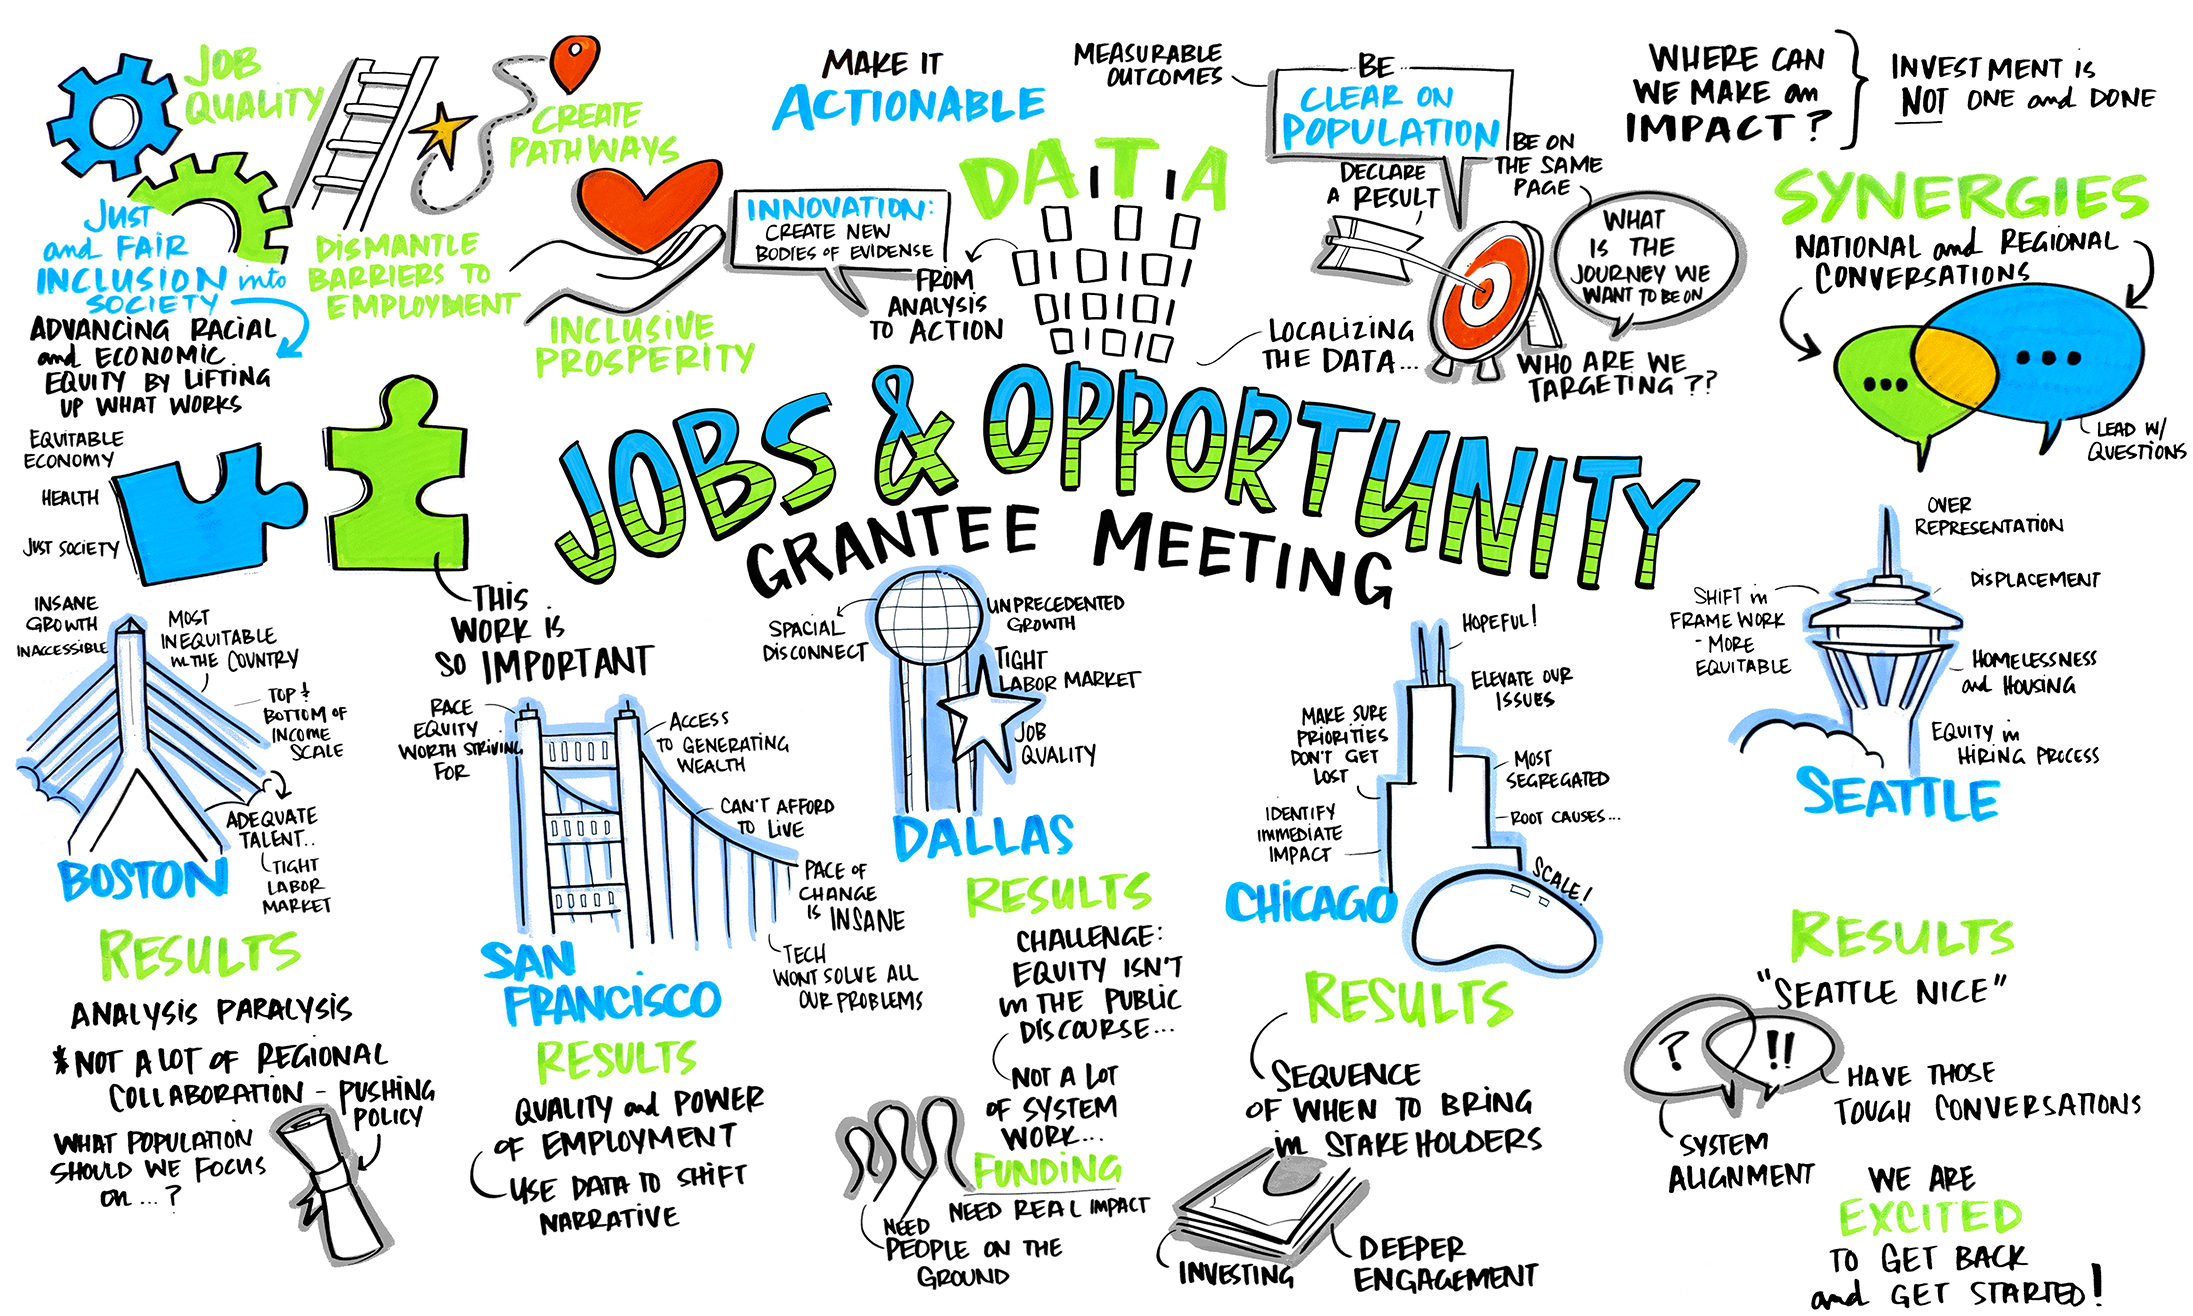 JOB
QUALITY
JUST
and FAIR
INCLUSION into
SOCIETY
ADVANCING RACIAL
and ECONOMIC
EQUITY BY LIFTING
UP WHAT WORKS
DISMANTLE
BARRIERS TO
EMPLOYMENT
CREATE
PATHWAYS
INCLUSIVE
PROSPERITY
MAKE IT
ACTIONABLE
INNOVATION:
CREATE NEW
BODIES OF EVIDENSE
DATA
FROM
ANALYSIS
TO ACTION
MEASURABLE
OUTCOMES
BE
CLEAR ON
POPULATION
DECLARE
A RESULT
BE ON
THE SAME
PAGE
WHAT
IS THE
JOURNEY WE
WANT TO BE ON
LOCALIZING
THE DATA...
WHO ARE WE
TARGETING??
WHERE CAN
WE MAKE an
IMPACT?
INVESTMENT IS
NOT ONE and DONE
SYNERGIES
NATIONAL and REGIONAL
CONVERSATIONS
LEAD W/
QUESTIONS
JOBS & OPPORTUNITY
GRANTEE MEETING
EQUITABLE
ECONOMY
HEALTH
JUST SOCIETY
THIS
WORK IS
SO IMPORTANT
INSANE
GROWTH
INACCESSIBLE
MOST
INEQUITABLE
in THE COUNTRY
TOP &
BOTTOM OF
INCOME
SCALE
ADEQUATE
TALENT..
TIGHT
LABOR
MARKET
BOSTON
RESULTS
ANALYSIS PARALYSIS
* NOT A LOT OF REGIONAL
COLLABORATION - PUSHING
POLICY
WHAT POPULATION
SHOULD WE FOCUS
ON...?
RACE
EQUITY
WORTH STRIVING
FOR
ACCESS
TO GENERATING
WEALTH
CAN'T AFFORD
TO LIVE
PACE OF
CHANGE
IS INSANE
TECH
WONT SOLVE ALL
OUR PROBLEMS
SAN
FRANCISCO
RESULTS
QUALITY and POWER
OF EMPLOYMENT
USE DATA TO SHIFT
NARRATIVE
SPACIAL
DISCONNECT
UNPRECEDENTED
GROWTH
TIGHT
LABOR MARKET
JOB
QUALITY
DALLAS
RESULTS
CHALLENGE:
EQUITY ISN'T
in THE PUBLIC
DISCOURSE...
NOT A LOT
OF SYSTEM
WORK...
FUNDING
NEED REAL IMPACT
NEED
PEOPLE ON THE
GROUND
HOPEFUL!
ELEVATE OUR
ISSUES
MAKE SURE
PRIORITIES
DON'T GET
LOST
MOST
SEGREGATED
IDENTIFY
IMMEDIATE
IMPACT
ROOT CAUSES...
SCALE!
CHICAGO
RESULTS
SEQUENCE
OF WHEN TO BRING
in STAKEHOLDERS
INVESTING
DEEPER
ENGAGEMENT
OVER
REPRESENTATION
SHIFT in
FRAME WORK
- MORE
EQUITABLE
DISPLACEMENT
HOMELESSNESS
and HOUSING
EQUITY in
HIRING PROCESS
SEATTLE
RESULTS
"SEATTLE NICE"
? !!
HAVE THOSE
TOUGH CONVERSATIONS
SYSTEM
ALIGNMENT
WE ARE
EXCITED
TO GET BACK
and GET STARTED!